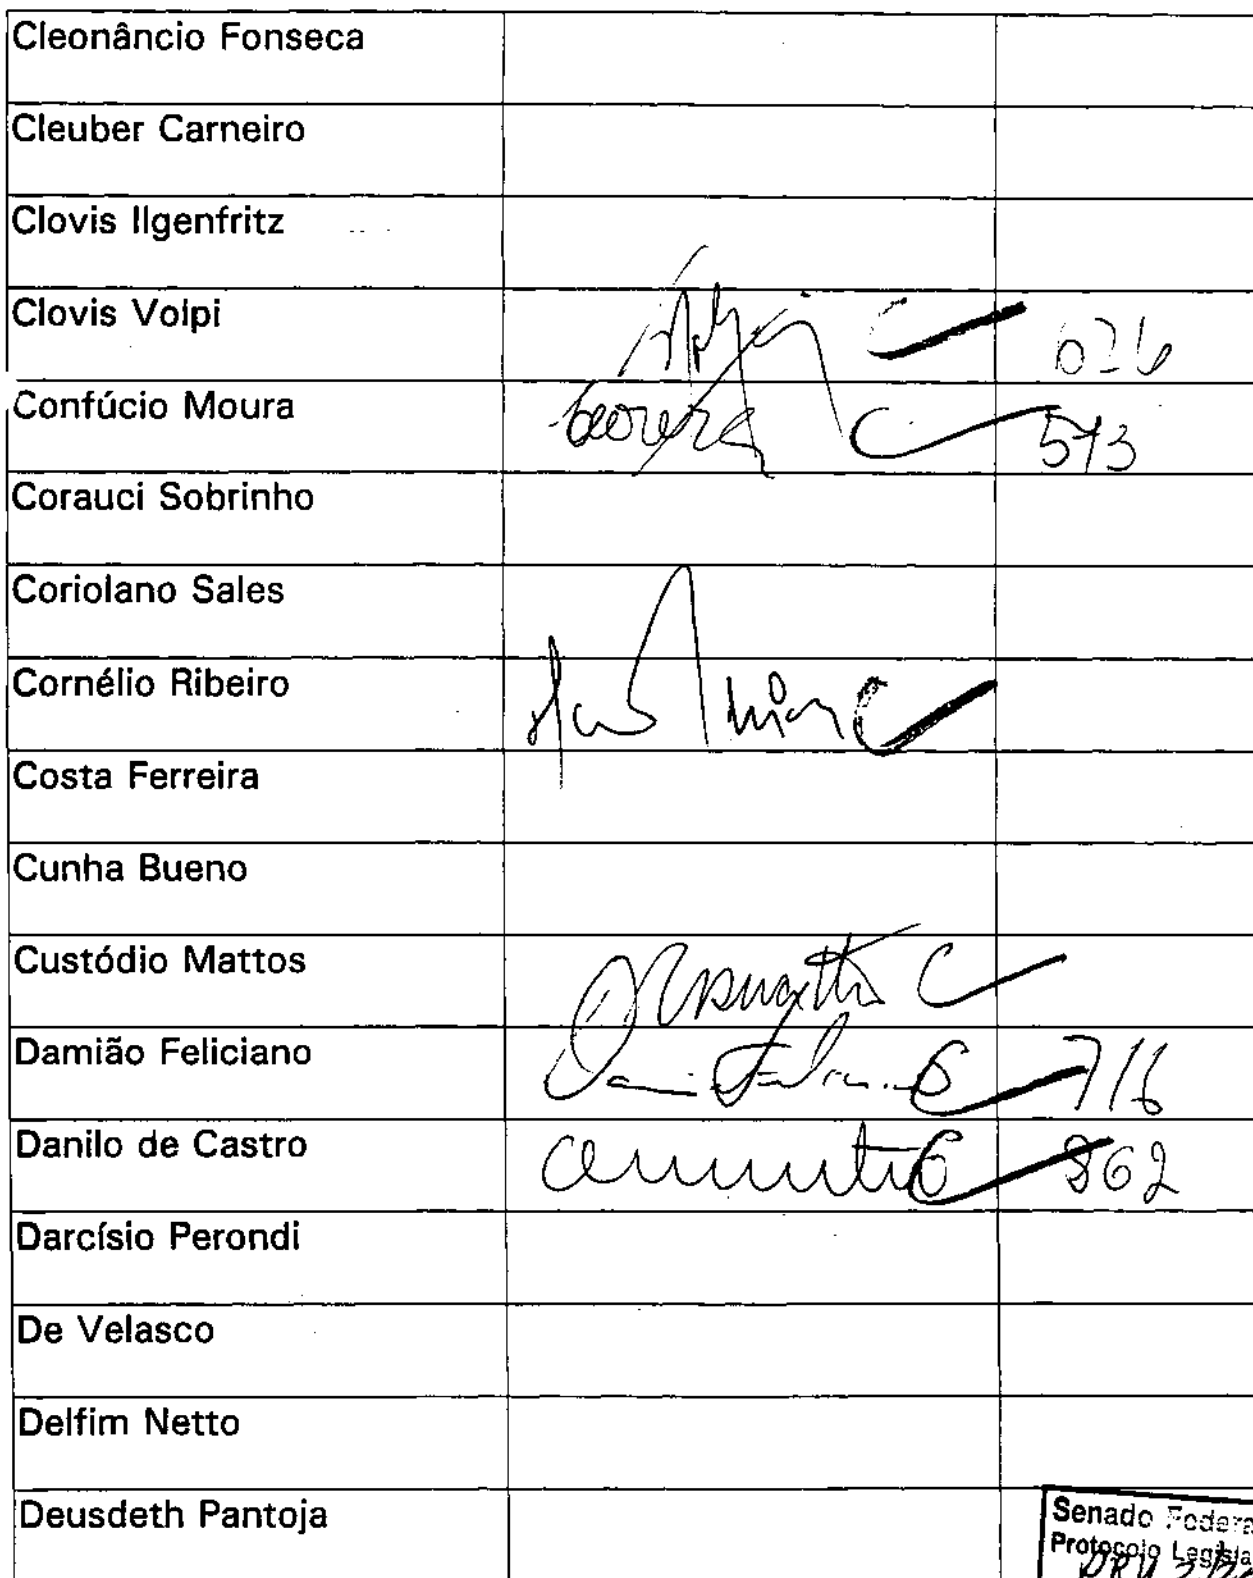 Cleonâncio Fonseca
Cleuber Carneiro
Clovis Ilgenfritz
Clovis Volpi
Confúcio Moura 573
Corauci Sobrinho
Coriolano Sales
Cornélio Ribeiro
Costa Ferreira
Cunha Bueno
Custódio Mattos
Damião Feliciano 716
Danilo de Castro 862
Darcísio Perondi
De Velasco
Delfim Netto
Deusdeth Pantoja
Senado Federa
Protocolo Legisla